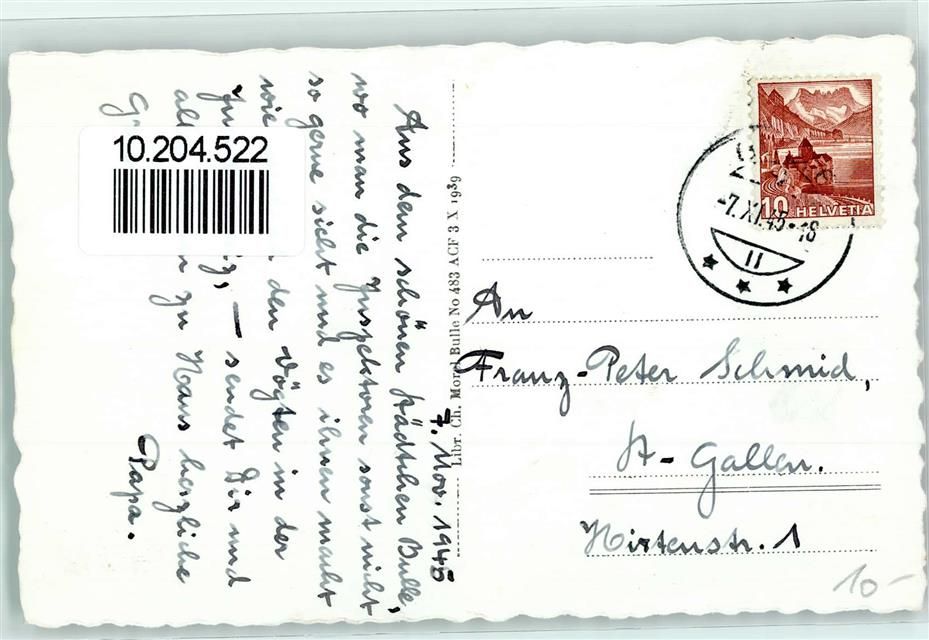 7. Nov. 1945
Aus dem schönen Städtchen Bulle,
wo man die Inspektoren sonst nicht
so gerne sieht und es ihnen macht
wie den Vögten in der
— sendet Dir und
zu Haus herzliche
Papa.
10.204.522
Libr. Ch. Morel Bulle No 483 ACF 3 X 1939
10 HELVETIA
-7.XI.45-18
11
An
Franz-Peter Schmid,
St-Gallen.
Hirtenstr. 1
10-